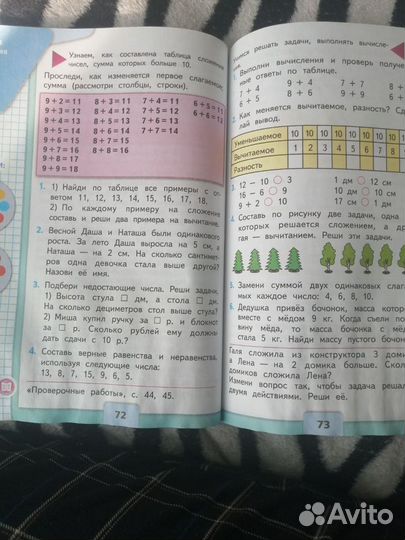 Узнаем, как составлена таблица сложения
чисел, сумма которых больше 10.
Проследи, как изменяется первое слагаемое,
сумма (рассмотри столбцы, строки).
9+2=11 8+3=11 7+4=11 6+5=11
9+3=12 8+4=12 7+5=12 6+6=12
9+4=13 8+5=13 7+6=13
9+5=14 8+6=14 7+7=14
9+6=15 8+7=15
9+7=16 8+8=16
9+8=17
9+9=18
1. 1) Найди по таблице все примеры с от-
ветом 11, 12, 13, 14, 15, 16, 17, 18.
2) По каждому примеру на сложение
составь и реши два примера на вычитание.
2. Весной Даша и Наташа были одинакового
роста. За лето Даша выросла на 5 см, а
Наташа — на 2 см. На сколько сантимет-
ров одна девочка стала выше другой?
Назови её имя.
3. Подбери недостающие числа. Реши задачи.
1) Высота стула □ дм, а стола □ дм.
На сколько дециметров стол выше стула?
2) Миша купил ручку за □ р. и блокнот
за □ р. Сколько рублей ему должны
дать сдачи с 10 р.?
4. Составь верные равенства и неравенства,
используя следующие числа:
13, 8, 7, 15, 9, 6, 5.
«Проверочные работы», с. 44, 45.
72
Учимся решать задачи, выполнять вычисле-
1. Выполни вычисления и проверь получен-
ные ответы по таблице.
7 + 4 9 + 4 7 + 7 8 +
6 + 5 8 + 6 9 + 6
2. Как меняется вычитаемое, разность? Сде-
лай вывод.
Уменьшаемое 10 10 10 10 10 10 10 10
Вычитаемое 1 2 3 4 5 6 7 8
Разность
3. 12 − 10 ○ 3 1 дм ○ 12 см
16 − 6 ○ 9 10 дм ○ 10 см
9 + 2 ○ 10 17 см ○ 1 дм
4. Составь по рисунку две задачи, одна
которых решается сложением, а др
гая — вычитанием. Реши эти задачи.
5. Замени суммой двух одинаковых слага
мых каждое число: 4, 6, 8, 10.
6. Дедушка привёз бочонок, масса котор
вместе с мёдом 9 кг. Когда съели по
вину мёда, то масса бочонка с мё
стала 5 кг. Найди массу пустого бочон
Галя сложила из конструктора 3 доми
а Лена — на 2 домика больше. Скол
домиков сложила Лена?
Измени вопрос так, чтобы задача решал
двумя действиями. Реши её.
73
Avito